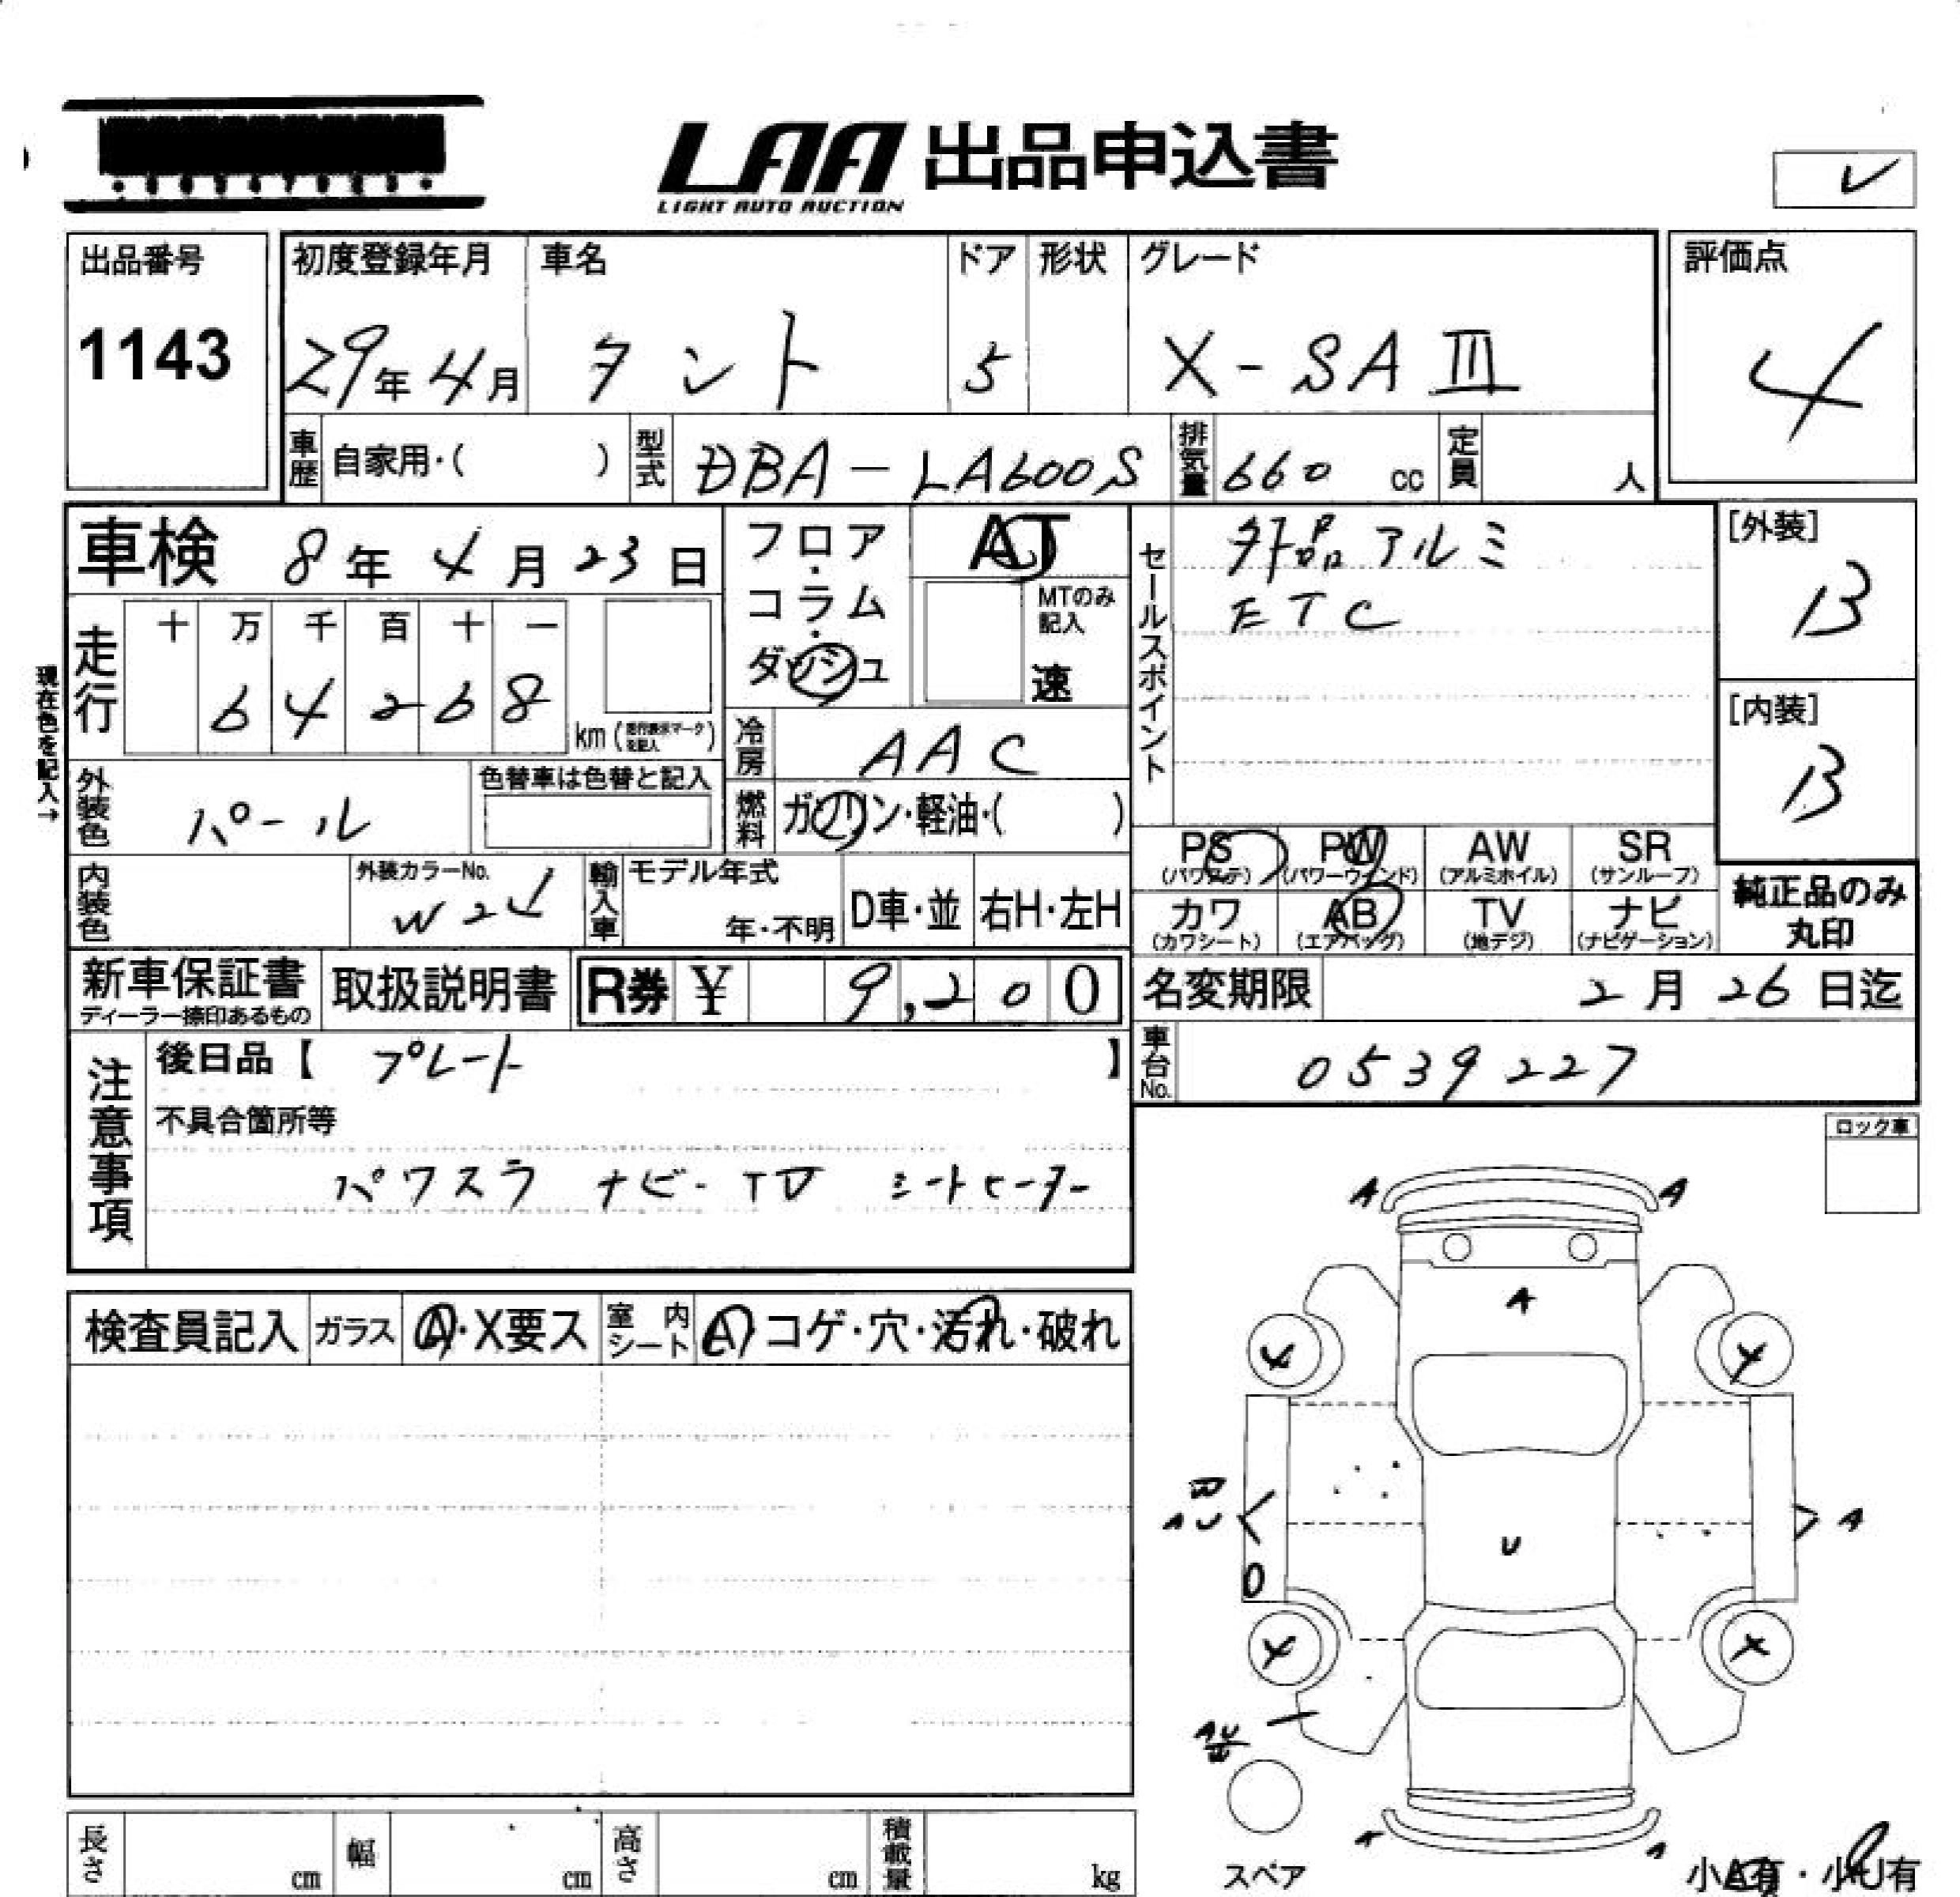 LAA 出品申込書
LIGHT AUTO AUCTION
出品番号 初度登録年月 車名 ドア 形状 グレード 評価点
1143 29年4月 タント 5 X-SAⅢ 4
車歴 自家用・( ) 型式 DBA-LA600S 排気量 660 cc 定員 人
車検 8年4月23日
フロア・コラム・ダッシュ
MTのみ記入
速
セールスポイント
外品アルミ
ETC
[外装]
B
[内装]
B
走行 十 万 千 百 十 一
6 4 2 6 8 km
現在色を記入→
冷房 AAC
外装色 パール 色替車は色替と記入
燃料 ガソリン・軽油・( )
PS (パワステ) PW (パワーウインド) AW (アルミホイル) SR (サンルーフ)
カワ (カワシート) AB (エアバッグ) TV (地デジ) ナビ (ナビゲーション)
純正品のみ
丸印
内装色 外装カラーNo. W24 輸入車 モデル年式 年・不明 D車・並 右H・左H
新車保証書 ディーラー捺印あるもの 取扱説明書 R券 ¥ 9,200
名変期限 2月26日迄
車台No. 0539227
注意事項
後日品【 プレート 】
不具合箇所等
パワスラ ナビ-TV シートヒーター
ロック車
検査員記入 ガラス A・X要ス 室内シート A コゲ・穴・汚れ・破れ
A A
A
4 4
A U A
U
4 4
A U
A A
スペア
小A有・小U有
長さ cm 幅 cm 高さ cm 積載量 kg